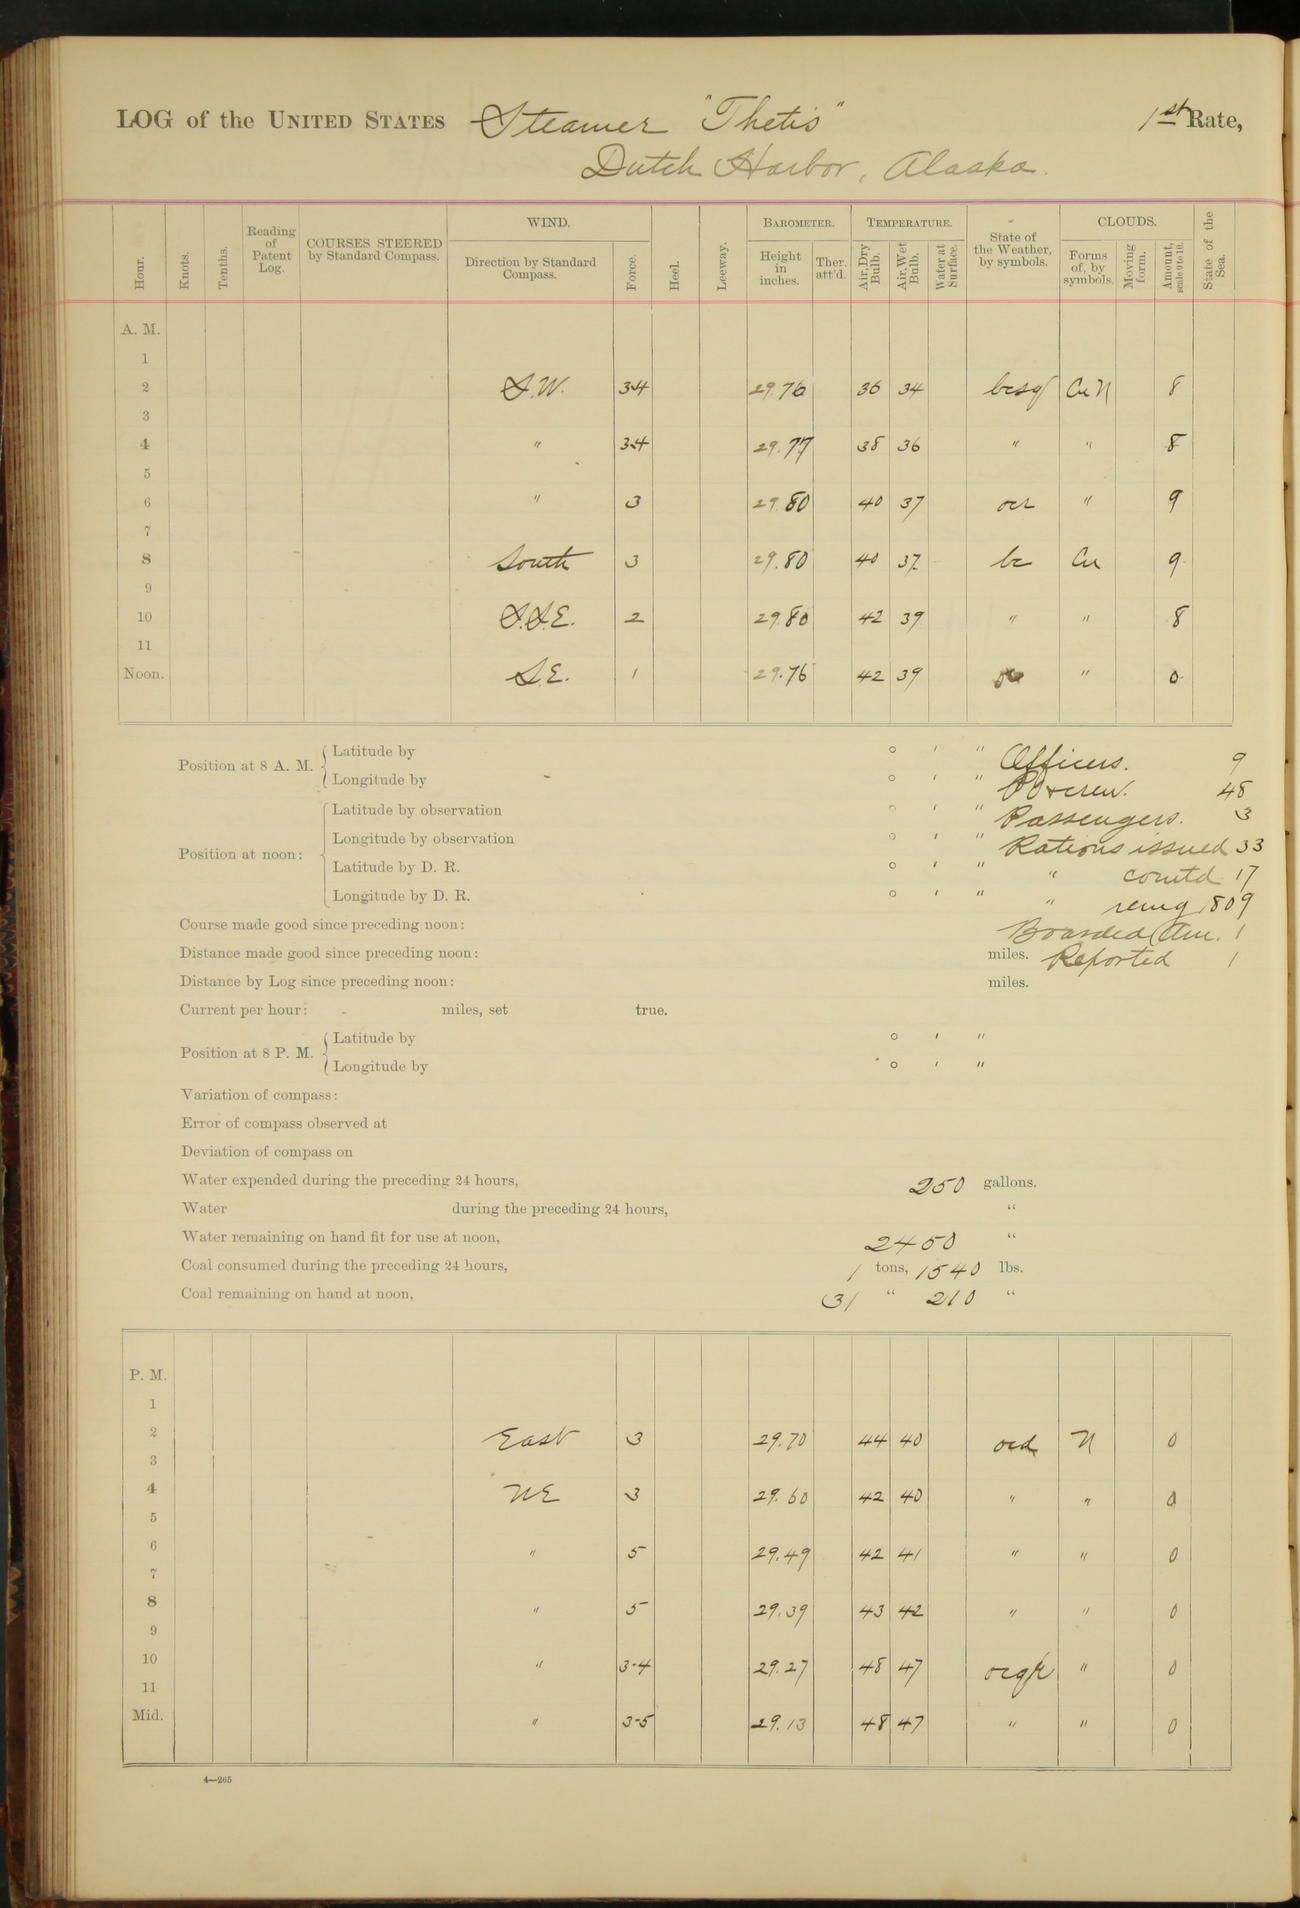 LOG of the UNITED STATES Steamer "Thetis" 1st Rate,
Dutch Harbor, Alaska.
Hour. Knots. Tenths. Reading of Patent Log. COURSES STEERED by Standard Compass. WIND. Direction by Standard Compass. Force. Heel. Leeway. BAROMETER. Height in inches. Ther. att'd. TEMPERATURE. Air, Dry Bulb. Air, Wet Bulb. Water at Surface. State of the Weather, by symbols. CLOUDS. Forms of, by symbols. Moving form. Amount, scale 0 to 10. State of the Sea.
A. M.
1
2 S.W. 3-4 29.76 36 34 bcsq Cu N 8
3
4 " 3-4 29.77 38 36 " " 8
5
6 " 3 29.80 40 37 ocr " 9
7
8 South 3 29.80 40 37 bc Cu 9
9
10 S.S.E. 2 29.80 42 39 " " 8
11
Noon. S.E. 1 29.76 42 39 " 0
Position at 8 A. M. Latitude by ° ' " Officers. 9
Longitude by ° ' " crew. 48
Position at noon: Latitude by observation ° ' " Passengers. 3
Longitude by observation ° ' " Rations issued 33
Latitude by D. R. ° ' " " comtd 17
Longitude by D. R. ° ' " " remg 1809
Course made good since preceding noon: Boarded (Am. 1
Distance made good since preceding noon: miles. Reported 1
Distance by Log since preceding noon: miles.
Current per hour: miles, set true.
Position at 8 P. M. Latitude by ° ' "
Longitude by ° ' "
Variation of compass:
Error of compass observed at
Deviation of compass on
Water expended during the preceding 24 hours, 250 gallons.
Water during the preceding 24 hours, "
Water remaining on hand fit for use at noon, 2450 "
Coal consumed during the preceding 24 hours, 1 tons, 1540 lbs.
Coal remaining on hand at noon, 31 " 210 "
P. M.
1
2 East 3 29.70 44 40 ocd N 0
3
4 NE 3 29.60 42 40 " " 0
5
6 " 5 29.49 42 41 " " 0
7
8 " 5 29.39 43 42 " " 0
9
10 " 3-4 29.27 48 47 ocqr " 0
11
Mid. " 3-5 29.13 48 47 " " 0
4—265